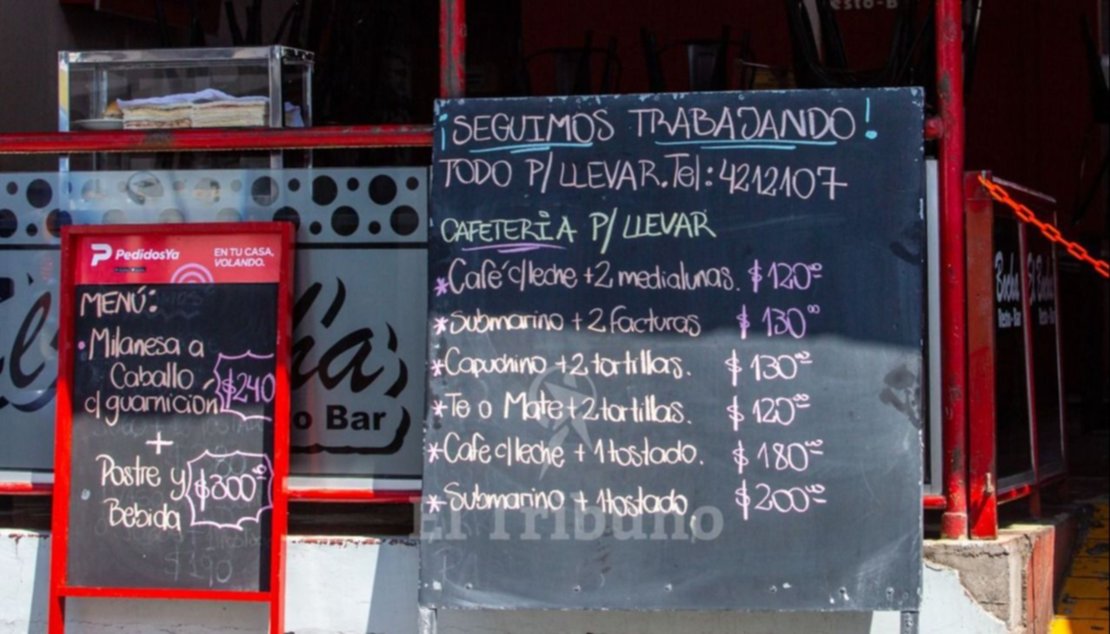 PedidosYa
EN TU CASA,
VOLANDO.
MENÚ:
• Milanesa a
Caballo
c/ guarnición $240
+
Postre y
Bebida $300
o Bar
¡SEGUIMOS TRABAJANDO!
TODO P/ LLEVAR. Tel: 4212107
CAFETERIA P/ LLEVAR
*Café c/leche + 2 medialunas. $120⁰⁰
*Submarino + 2 facturas $130⁰⁰
*Capuchino + 2 tortillas. $130⁰⁰
*Te o Mate + 2 tortillas. $120⁰⁰
*Cafe c/leche + 1 tostado. $180⁰⁰
*Submarino + 1 tostado $200⁰⁰
El Tribuno
Resto-Bar